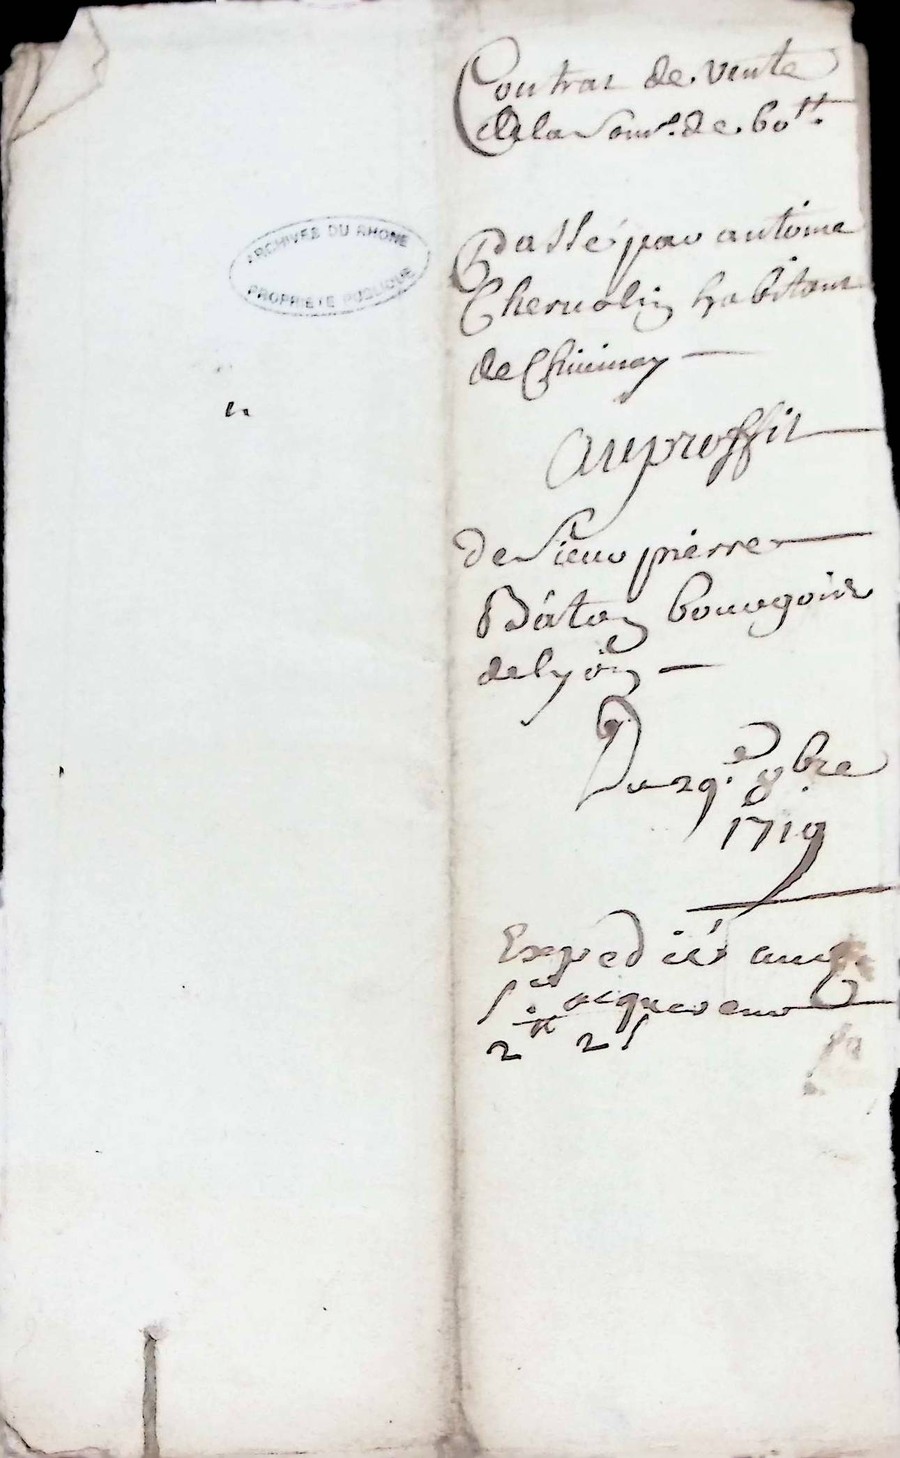 ARCHIVES DU RHONE
PROPRIETE PUBLIQUE
Contrat de vente
de la som.e de 60tt.
Passé par antoine
habitant
de
Au proffit
de Sieur pierre
Bâton bourgois
de lyon
Du 29.e 8.bre
1719
Expedié au
S.r acquereur
2tt 2s